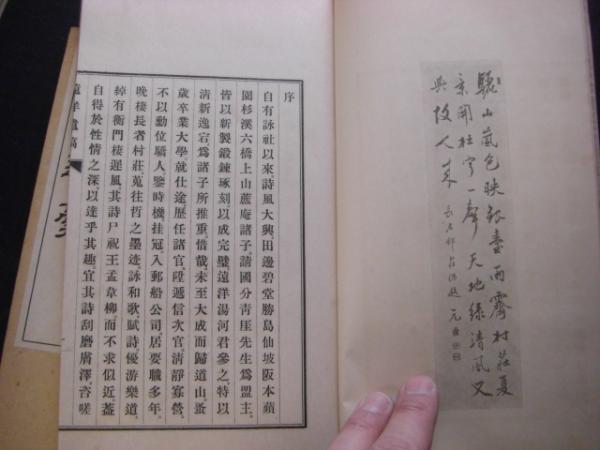 驪山嵐色映銀臺雨霽村莊夏
景開杜宇一聲天地綠清風又
與故人來
序
自有詠社以來詩風大興田邊碧堂勝島仙坡阪本蘋
園杉溪六橋上山蘆庵諸子請國分靑厓先生爲盟主
皆以新製鍛鍊琢刻以成完璧遠洋湯河君參之特以
清新逸宕爲諸子所推重惜哉未至大成而歸道山蚤
歲卒業大學就仕途歷任諸官陞遞信次官清靜寡營
不以勳位驕人鑒時機挂冠入郵船公司居要職多年
晚棲長者村莊蒐往哲之墨迹詠和歌賦詩優游樂道
綽有衡門棲遲風其詩尸祝王孟韋柳而不求似近蓋
自得於性情之深以達乎其趣宜其詩刮磨膚澤咨嗟
遠洋遺稿